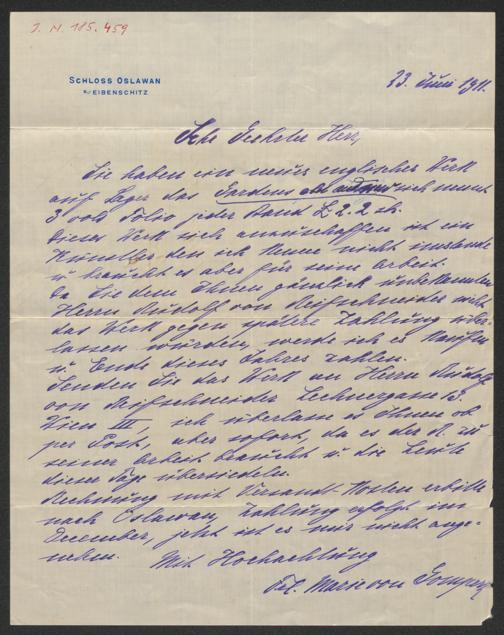 J. N. 185.459
SCHLOSS OSLAWAN
B/ EIBENSCHITZ
23. Juni 1911.
Sehr Geehrter Herr,
Sie haben ein neues englisches Werk
auf Lager das Gardens old and new sich nennt
3 vol. Folio jeder Band £ 2.2 sh.
Dieses Werk sich anzuschaffen ist ein
Künstler den ich kenne nicht imstande
u. braucht es aber für seine Arbeit.
Da Sie dem Ihnen gänzlich unbekannten
Herrn Rudolf von Reifschneider nicht
das Werk gegen spätere Zahlung über-
lassen würden, werde ich es kaufen
u. Ende dieses Jahres zahlen.
Senden Sie das Werk an Herrn Rudolf
von Reifschneider Lechnergasse 13.
Wien III, ich überlasse es Ihnen ob
per Post, aber sofort, da es der R. zu
seiner Arbeit braucht u. die Leute
dieser Tage übersiedeln.
Rechnung mit Versandt-Kosten erbitte
nach Oslawan, Zahlung erfolgt im
December, jetzt ist es mir nicht ange-
nehm.
Mit Hochachtung
Marie von Gomperz